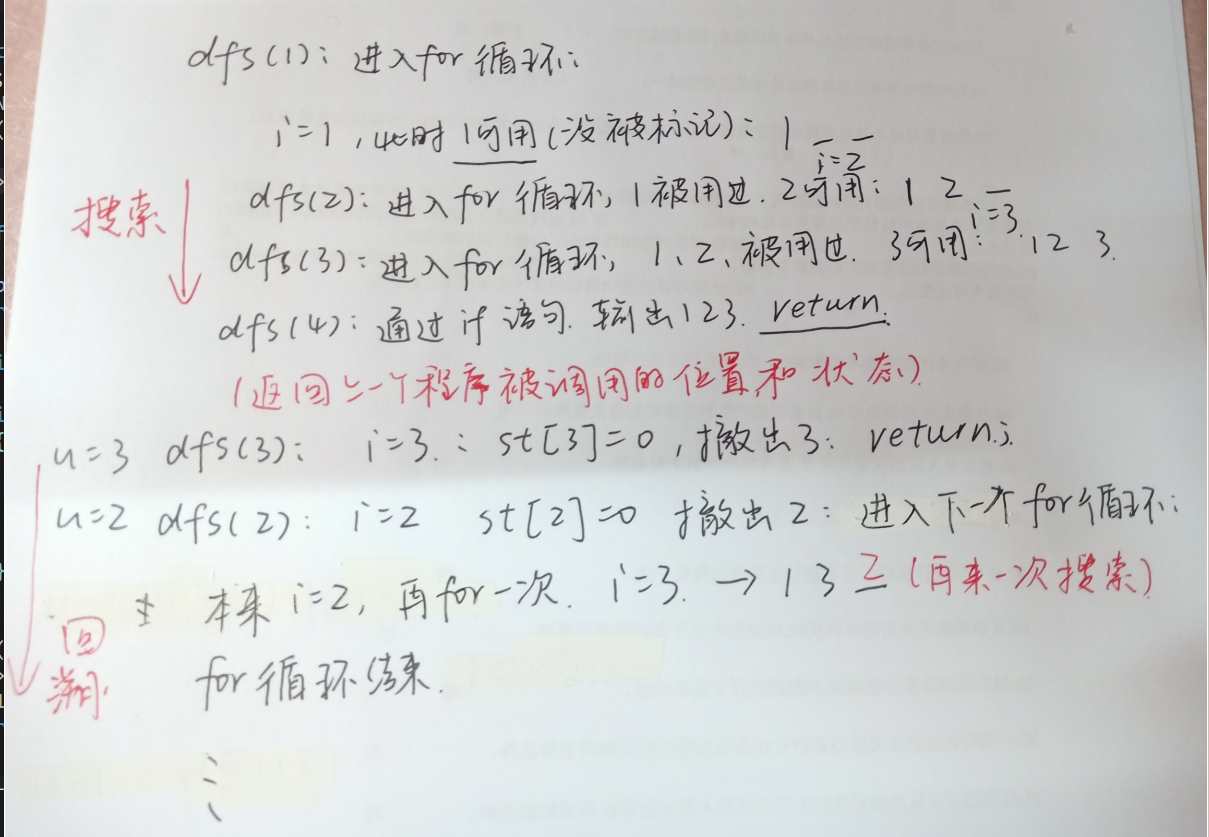 dfs(1): 进入for循环:
i=1,此时1可用(没被标记): 1 _ _
i=2
dfs(2): 进入for循环,1被用过.2可用: 1 2 _
i=3
dfs(3): 进入for循环, 1、2、被用过. 3可用: 1 2 3.
搜索
dfs(4): 通过if语句.输出123. return.
(返回上一个程序被调用的位置和状态)
u=3 dfs(3): i=3.: st[3]=0,撤出3: return;
u=2 dfs(2): i=2 st[2]=0 撤出2: 进入下一个for循环:
本来i=2,再for一次. i=3. → 1 3 2(再来一次搜索)
回溯
for循环结束.
⋮